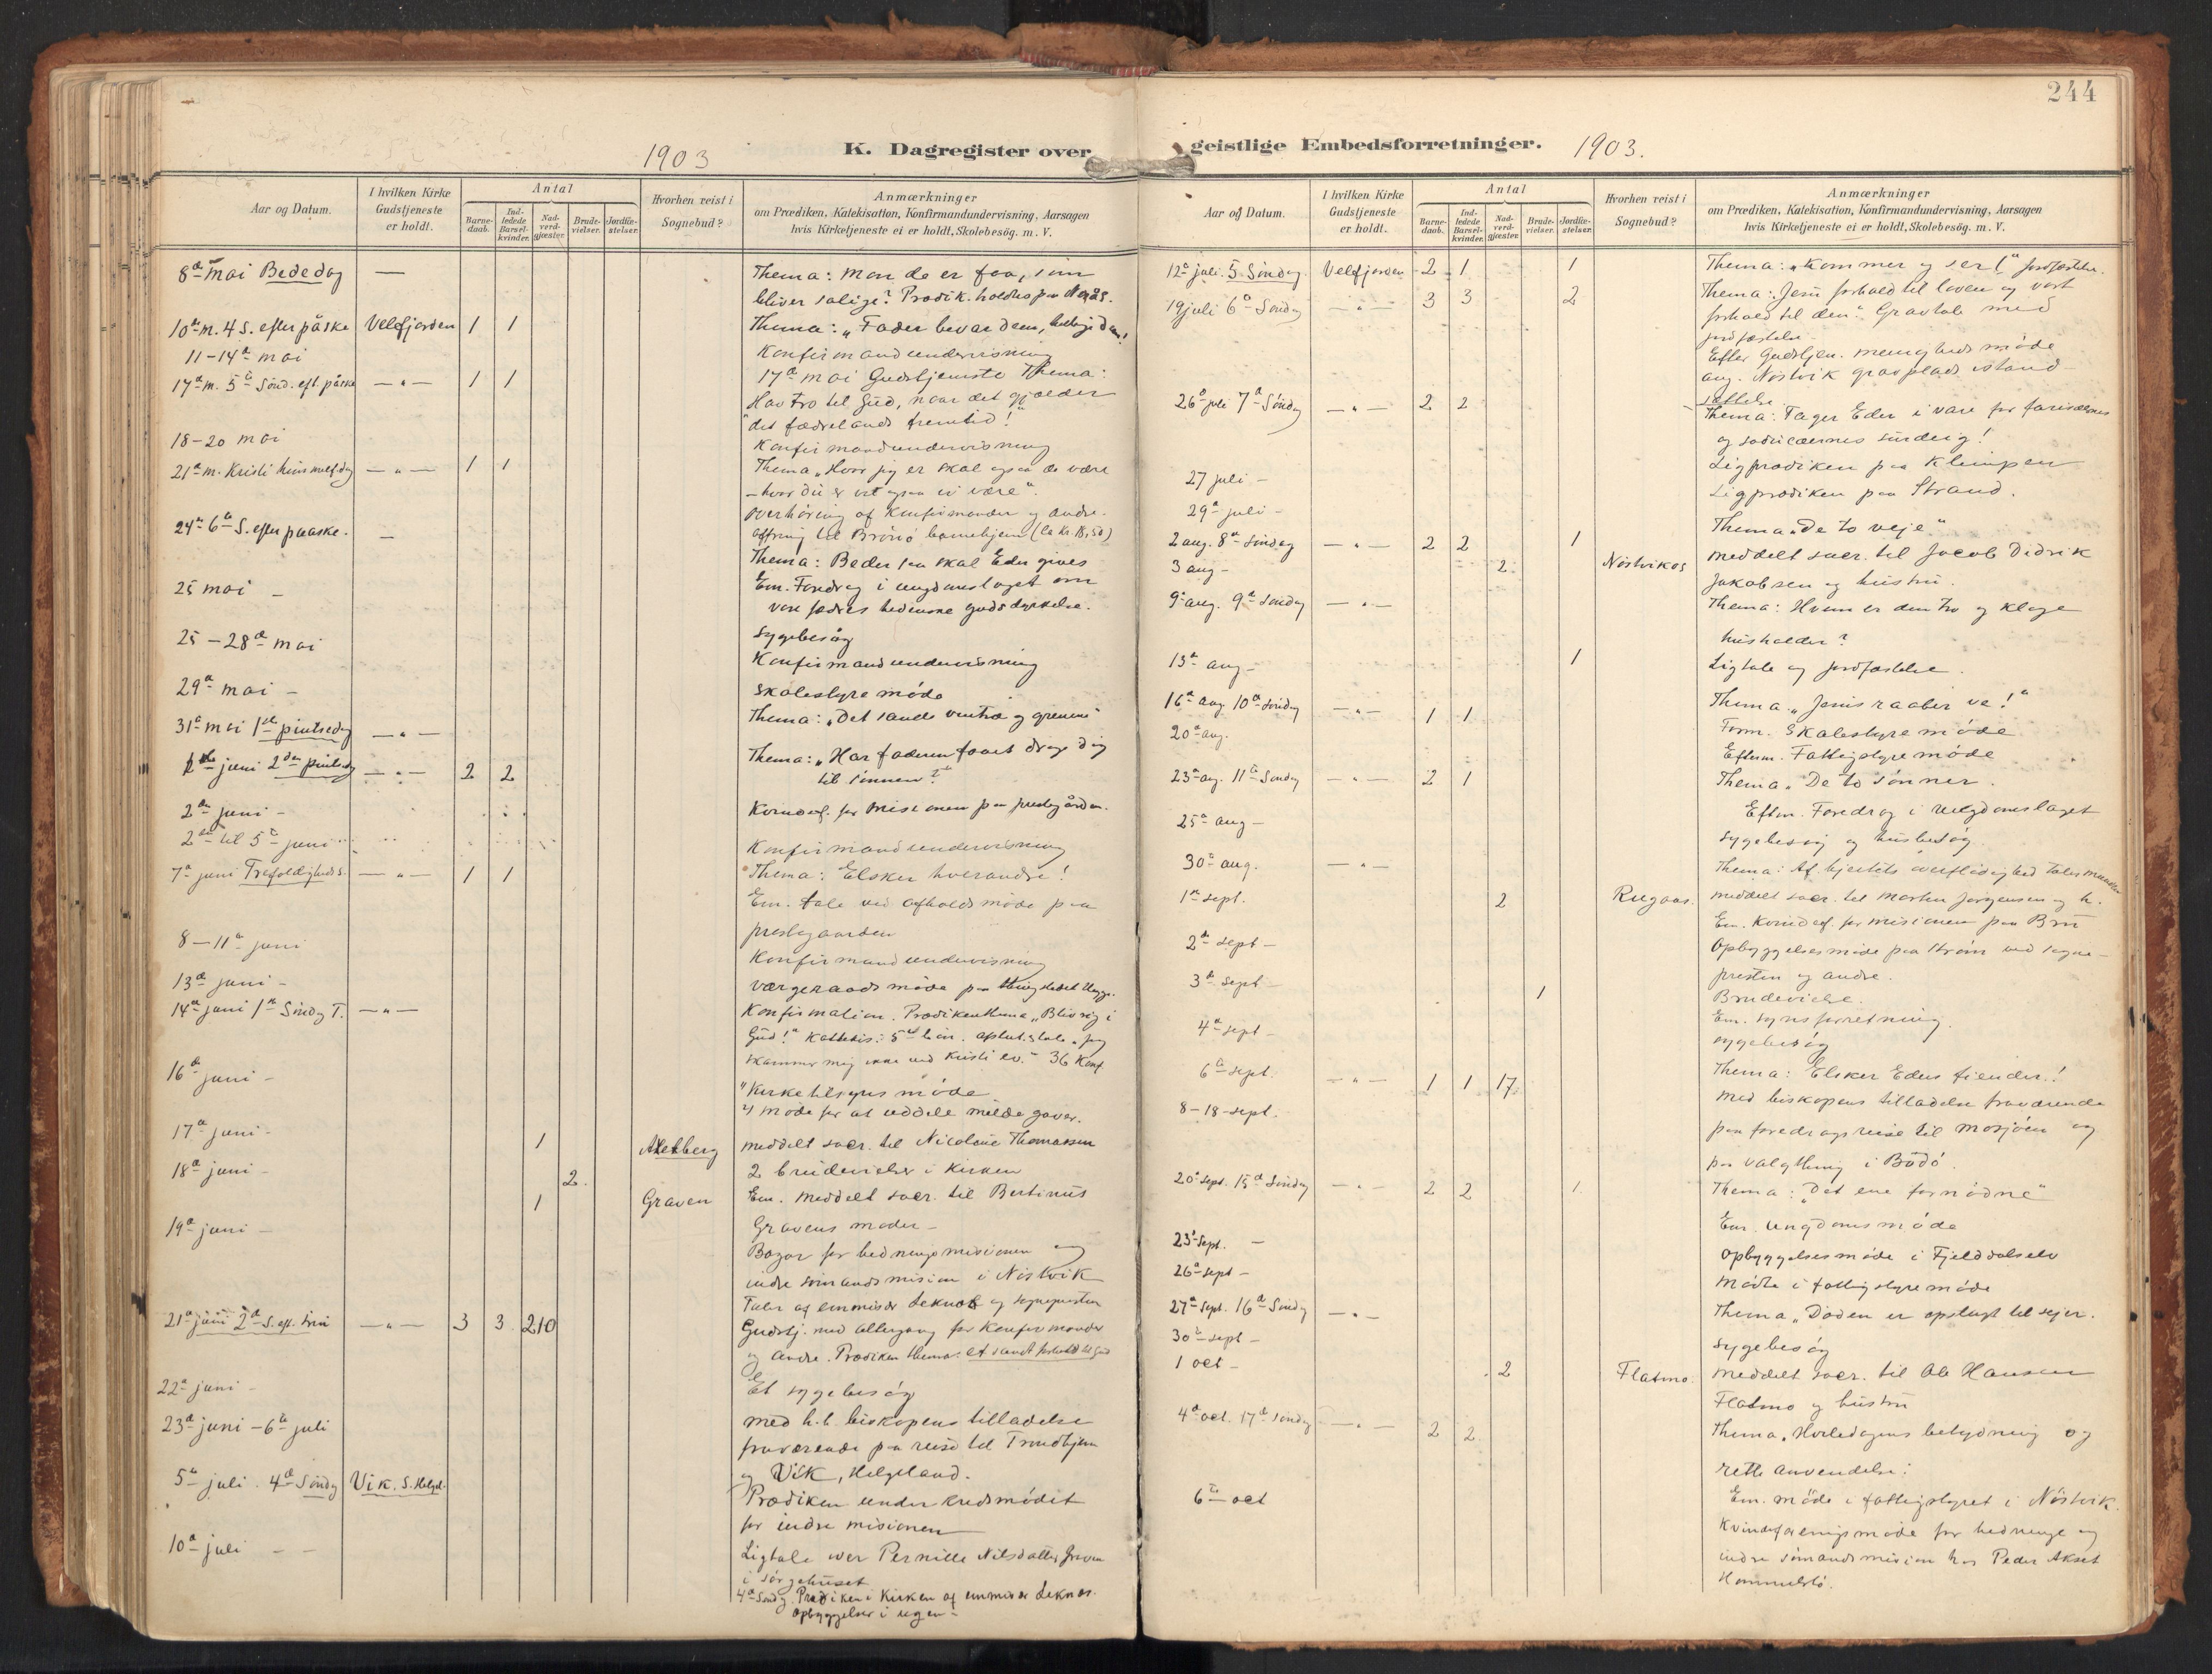 244
1903
K. Dagregister over
geistlige Embedsforretninger.
1903.
Aar og Datum.
I hvilken Kirke Gudstjeneste er holdt.
Antal
Barne-daab.
Ind-ledede Barsel-kvinder.
Nad-verd-gjæster.
Brude-vielser.
Jordfæ-stelser.
Hvorhen reist i Sognebud?
Anmærkninger
om Prædiken, Katekisation, Konfirmandundervisning, Aarsagen
hvis Kirketjeneste ei er holdt, Skolebesög. m. V.
8de mai Bededag — Thema: Mon de er faa, som
bliver salige? Prædik. holdtes paa
10de m. 4 S. efter påske Velfjorden 1 1 Thema: „Fader bevar dem, hellige dem!
11-14de mai Konfirmandundervisning
17de m. 5te Sönd. eft. påske —„— 1 1 17de mai Gudstjeneste Thema:
Hav tro til Gud, naar det gjælder
det fædrelands fremtid!"
18-20 mai Konfirmandundervisning
21de m. Kristi himmelfdag —„— 1 1 Thema „Hvor jeg er skal ogsaa de være
— hvor du er vil ogsaa vi være".
24de 6te S. efter paaske. — Overhöring af konfirmander og andre.
Offring til Brönö barnehjem (la Kr. 18,50)
Thema: Beder saa skal Eder gives
25 mai — Em. Foredrag i ungdomslaget om
vore fædres hedenske gudsdyrkelse.
25-28de mai Sygebesög
Konfirmandundervisning
29de mai — Skolestyremöde
31te mai 1ste pintsedag —„— Thema: „Det sande vintræ og grenene"
1ste juni 2den pintsedag —„— 2 2 Thema: „Har faderen faaet drage dig
til sönnen?"
2den juni — Kvindef. for missionen paa prestegården.
2den til 5te juni Konfirmandundervisning
7de juni Trefoldigheds. —„— 1 1 Thema: Elsker hverandre!
Em. tale ved afholdsmöde paa
prestegaarden
8-11te juni Konfirmandundervisning
13de juni — Værgeraadsmöde paa thingstedet
14de juni 1ste Söndag T. —„— Konfirmation. Prædikenthema „Bliv rig i
Gud!" Katekis: 5te bön. afslut. tale „jeg
skammer mig ikke ved Kristi ev." 36 Konf
16de juni — Kirketilsynsmöde
2) Möde for at uddele milde gaver.
17de juni — 1 Axelberg meddelt sacr. til Nicoline Thomassen
18de juni — 2. 2 brudevielser i kirken
1 Graven Em. meddelt sacr. til Bertinus
Gravens moder —
19de juni — Bazar for hedningemissionen og
indre sömandsmision i Nöstvik
Taler af emmisær Leknes og sogneprsten
21de juni 2den S. eft. trin —„— 3 3 210 Gudstj. med altergang for konfirmander
og andre. Prædiken thema: et sandt forhold til Gud
22de juni — Et sygebesög
23de juni – 6te juli med h.h. biskopens tilladelse
fraværende paa reise til Trondhjem
og Vik, Helgeland.
5te juli. 4de Söndag Vik. S. Helgel. Prædiken under kredsmödet
for indre misionen
10de juli — — Ligtale over Pernille Nilsdatter
i sörgehuset
4de Söndag. Prædiken i kirken af emmisær Leknes.
opbyggelser i ugen —
12te juli. 5. Söndag Velfjorden 2 1 1 Thema: „Kommer og ser!" jordfæstelse.
19 juli 6te Söndag —„— 3 3 2 Thema: Jesu forhold til loven og vort
forhold til den". Gravtale med
jordfæstelse —
Efter Gudstjen. menighedsmöde
ang. Nöstvik gravplads istand-
sættelse.
26de juli 7de Söndag —„— 2 2 Thema: Tager Eder i vare for farisæernes
og saducæernes surdeig!
27 juli — Ligprædiken paa Klimpen
29de juli — Ligprædiken paa Strand.
2 aug. 8de Söndag —„— 2 2 1 Thema „De to veje"
3 aug — 2 Nöstvikås meddelt sacr. til Jacob Didrik
Jakobsen og hustru.
9de aug. 9de Söndag —„— Thema: Hvem er den tro og kloge
husholder?
13de aug — 1 Ligtale og jordfæstelse.
16de aug. 10de Söndag —„— 1 1 Thema: „Jesus raaber ve!"
20de aug. Form. Skolestyremöde
Efterm. Fattigstyremöde
23de aug. 11te Söndag —„— 2 1 Thema „De to sönner.
Eftm. Foredrag i ungdomslaget
25de aug — sygebesög og husbesög
30te aug. —„— Thema: Af hjertets overflödighed taler munden
1ste sept. 2 Rugaas. meddelt sacr. til Morten Jörgensen og h.
Em. Kvindef. for misionen paa Bru
2den sept — Opbyggelsesmöde paa Ström ved sogne-
presten og andre.
3de sept — 1 Brudevielse.
Em. synsforretning.
4de sept — sygebesög
6te sept. —„— 1 1 17. Thema: Elsker Eders fiender!
8-18 sept. Med biskopens tilladelse fraværende
paa foredragsreise til Mosjöen og
paa valgthing i Bodö.
20de sept. 15de Söndag —„— 2 2 1. Thema: „Det ene fornödne"
Em. ungdomsmöde
23de sept. — opbyggelsesmöde i Fjelddalselv
26de sept — Mödte i fattigstyremöde
27de sept. 16de Söndag —„— Thema „Döden er opslugt til sejer.
30te sept — sygebesög
1 oct — 2 Flatmo. meddelt sacr. til Ole Hansen
Flatmo og hustru
4de oct. 17de Söndag —„— 2 2. Thema „Hviledagens betydning og
rette anvendelse:
6te oct Em. möde i fattigstyret i Nöstvik.
Kvindeforeningsmöde for hedninge og
indre sömandsmision hos Peder Akset
Hommelstö.